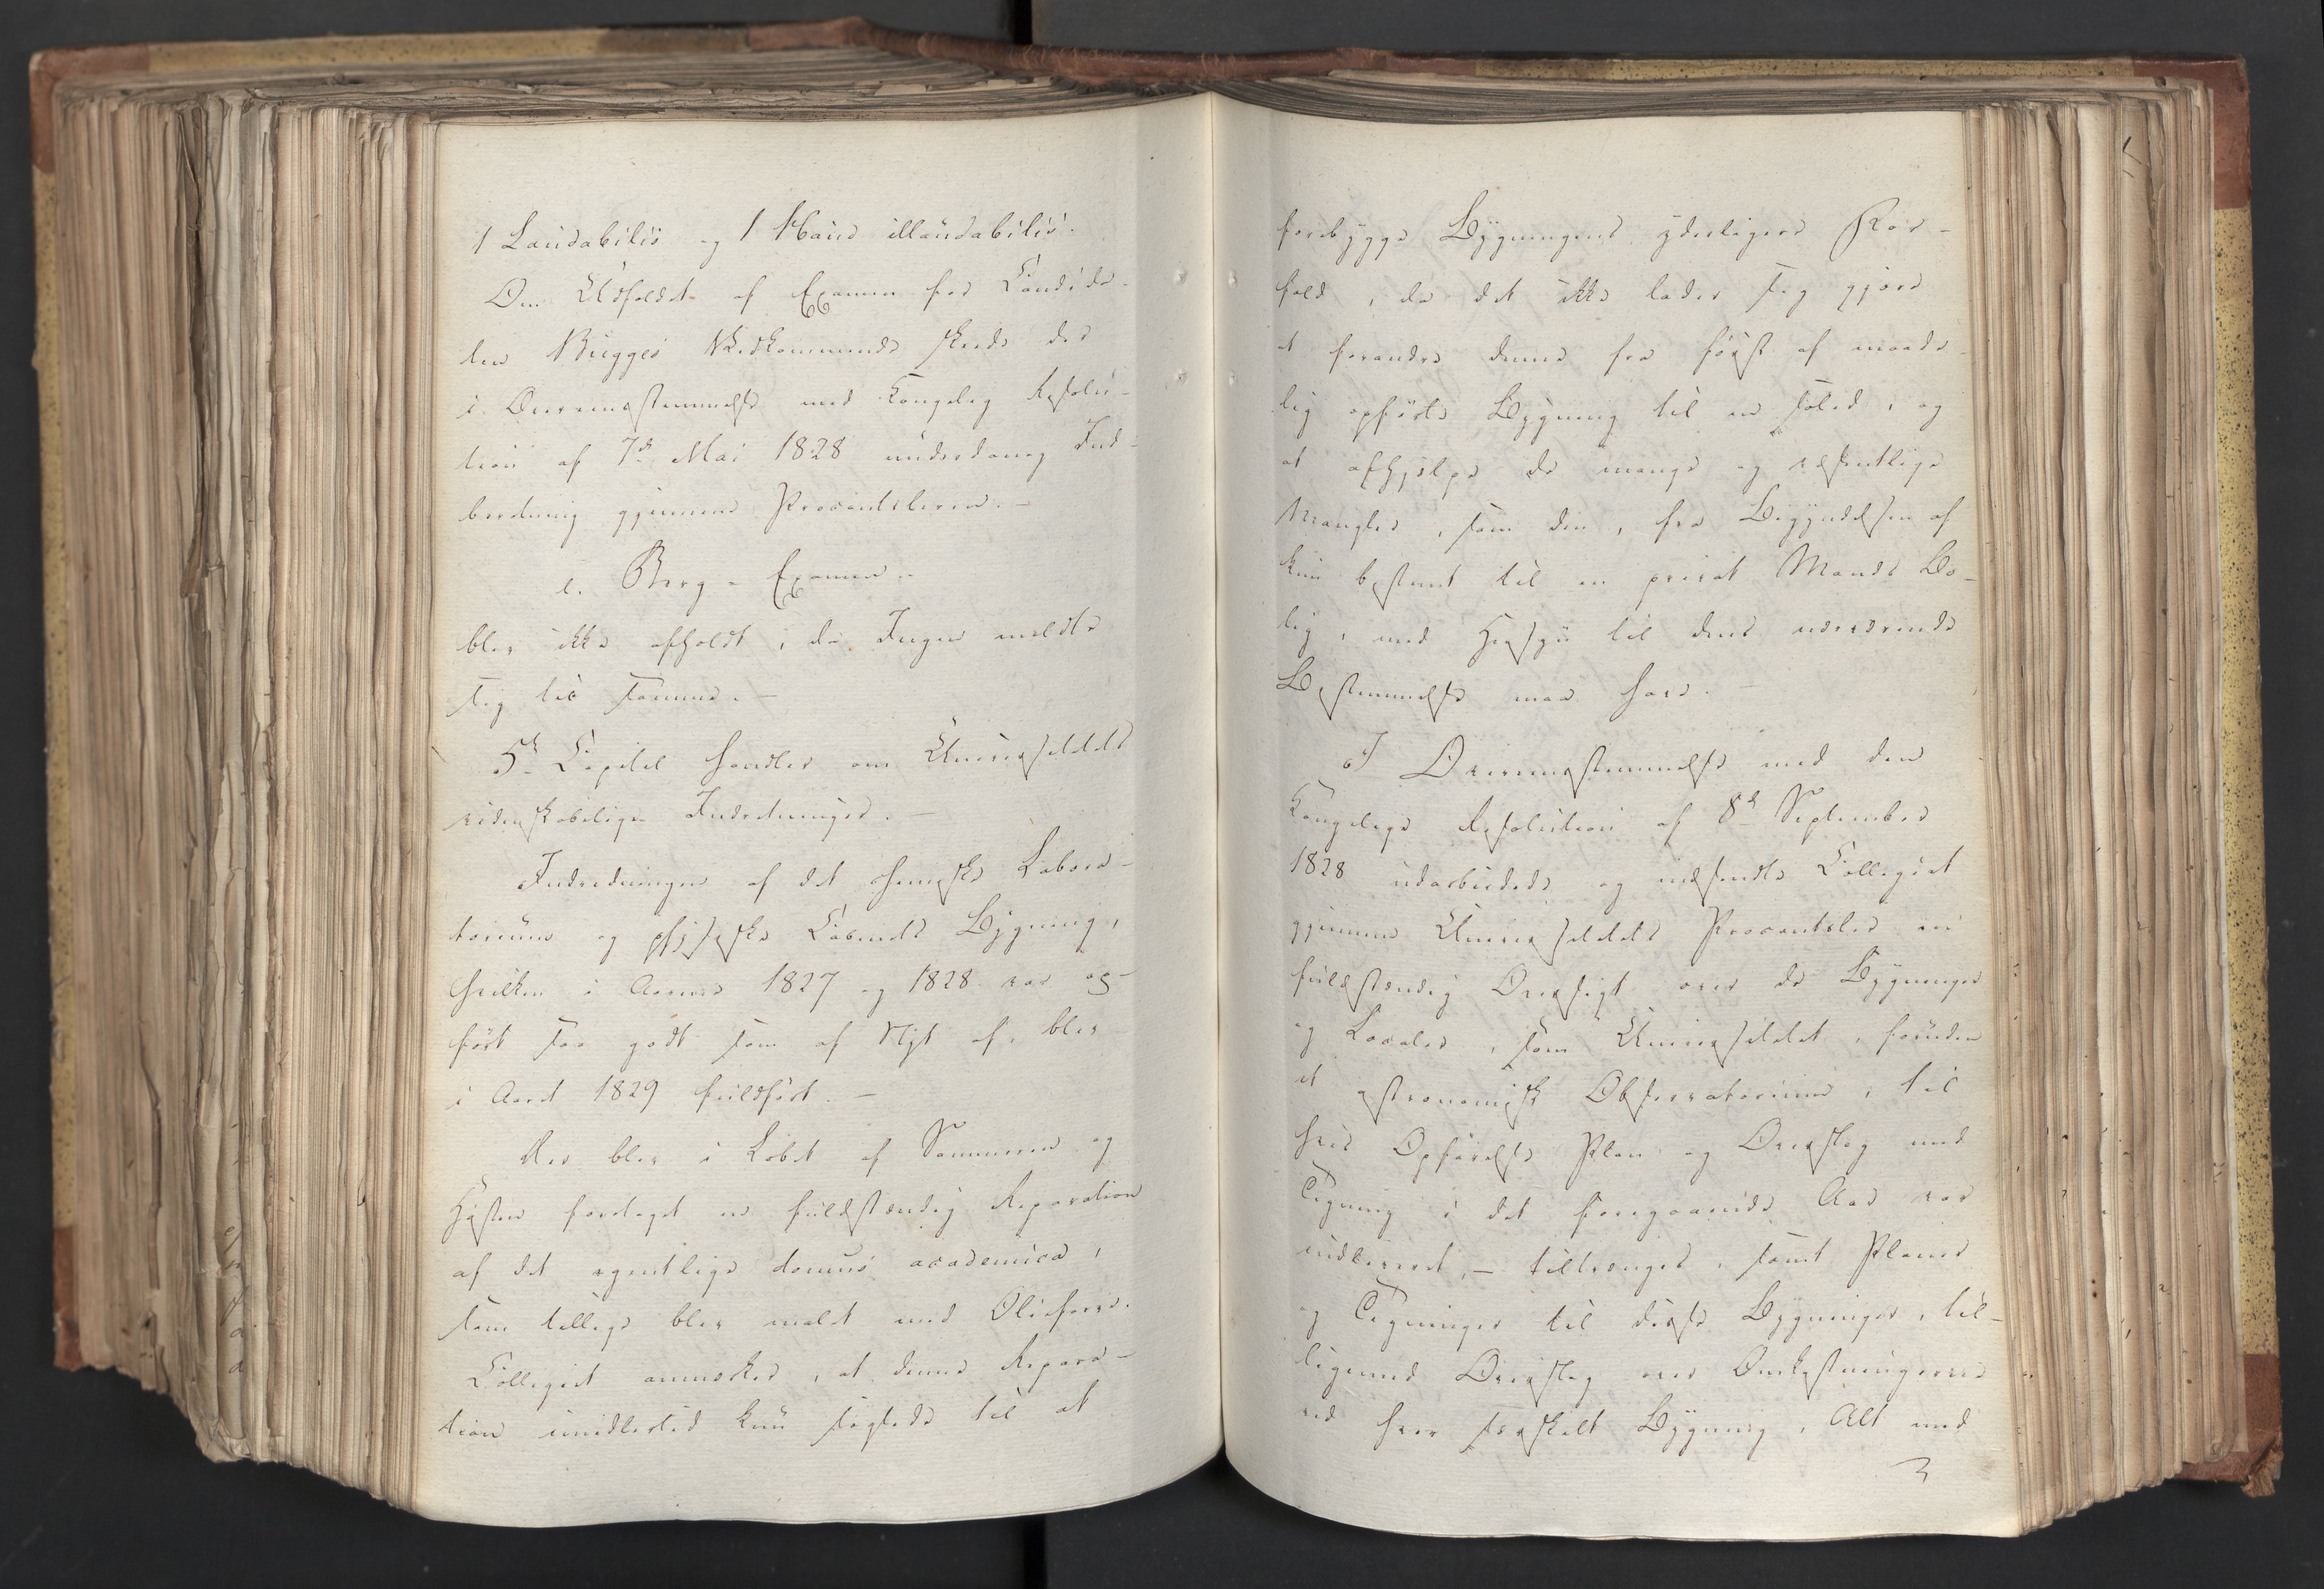 1 Laudabilis og 1 Haud illaudabilis.
Om Udfaldet af Examen for Candida-
ten Bugges Vedkommende skede der
i Overeensstemmelse med Kongelig Resolu-
tion af 7de Mai 1828 underdanig Ind-
beretning gjennem Procantsleren. –
e. Berg-Examen.
blev ikke afholdt, da Ingen meldte
sig til samme. –
5te Capitel handler om Universitetets
videnskabelige Indretninger. –
Indredningen af det chemiske Labora-
torium og physiske Cabinets Bygning,
hvilken i Aarene 1827 og 1828 var op-
ført saa godt som af Nyt af, blev
i Aaret 1829 fuldført. –
Der blev i Løbet af Sommeren og
Høsten foretaget en fuldstændig Reparation
af det egentlige domus academica,
som tillige blev malet med Oliefarve.
Collegiet anmærker, at denne Repara-
tion imidlertid kun sigtede til at
forebygge Bygningens yderligere For-
fald, da det ikke lader sig gjøre
at forandre denne fra først af maade-
lig opførte Bygning til en solid, og
at afhjelpe de mange og væsentlige
Mangler, som den, fra Begyndelsen af
kun bestemt til en privat Mands Bo-
lig, med Hensyn til dens nærværende
Bestemmelse maa have. –
I Overeensstemmelse med den
Kongelige Resolution af 8de September
1828 udarbeidede og indsendte Collegiet
gjennem Universitetets Procantsler en
fuldstændig Oversigt over de Bygninger
og Localer, som Universitetet, foruden
et astronomisk Observatorium, til
hvis Opførelse Plan og Overslag med
Tegning i det foregaaende Aar var
indleveret, – tiltrænger, samt Planer
og Tegninger til disse Bygninger, til-
ligemed Overslag over Omkostningerne
ved hver særskilt Bygning, Alt med